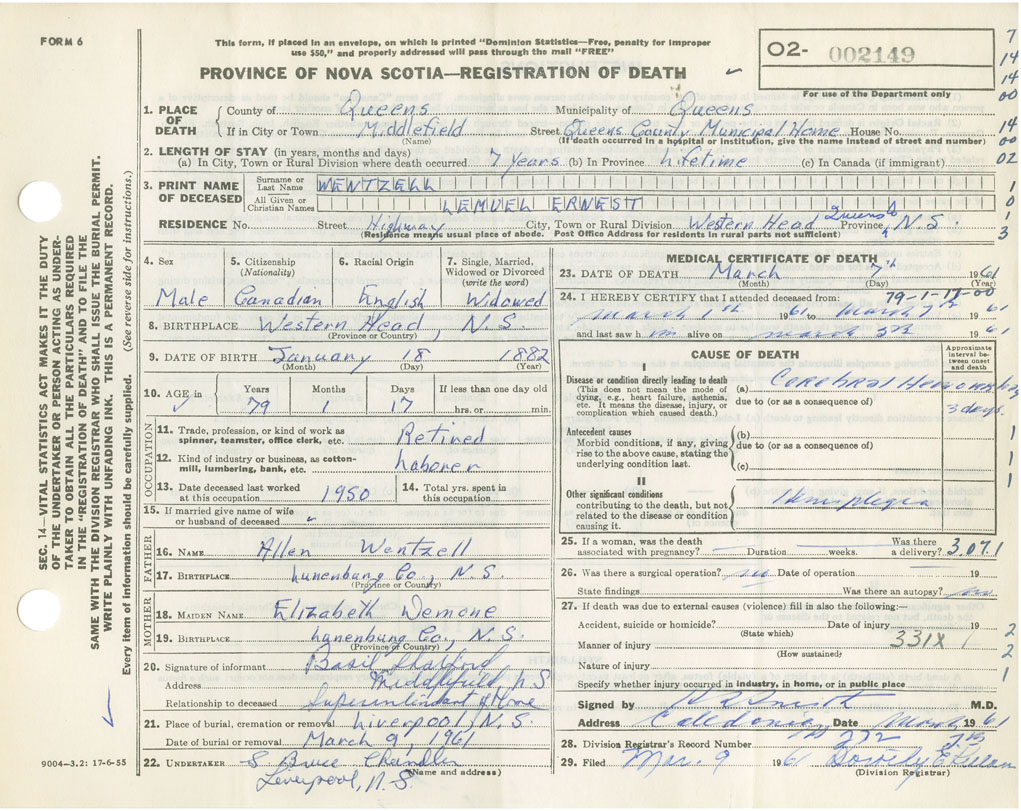 FORM 6
This form, if placed in an envelope, on which is printed "Dominion Statistics—Free, penalty for improper
use $50," and properly addressed will pass through the mail "FREE"
PROVINCE OF NOVA SCOTIA—REGISTRATION OF DEATH
02- 002149
For use of the Department only
7
14
14
00
14
00
02
1
0
1
3
1. PLACE OF DEATH County of Queens Municipality of Queens
If in City or Town Middlefield Street Queens County Municipal Home House No.
(Name) (If death occurred in a hospital or institution, give the name instead of street and number)
2. LENGTH OF STAY (in years, months and days)
(a) In City, Town or Rural Division where death occurred 7 years (b) In Province Lifetime (c) In Canada (if immigrant)
3. PRINT NAME OF DECEASED Surname or Last Name WENTZELL
All Given or Christian Names LEMUEL ERNEST
RESIDENCE No. Street Highway City, Town or Rural Division Western Head Queens Co Province N.S.
(Residence means usual place of abode. Post Office Address for residents in rural parts not sufficient)
4. Sex 5. Citizenship (Nationality) 6. Racial Origin 7. Single, Married, Widowed or Divorced (write the word)
Male Canadian English Widowed
8. BIRTHPLACE Western Head, N.S.
(Province or Country)
9. DATE OF BIRTH January 18 1882
(Month) (Day) (Year)
10. AGE in Years Months Days If less than one day old
79 1 17 hrs. or min.
OCCUPATION
11. Trade, profession, or kind of work as spinner, teamster, office clerk, etc. Retired
12. Kind of industry or business, as cotton-mill, lumbering, bank, etc. Laborer
13. Date deceased last worked at this occupation 1950 14. Total yrs. spent in this occupation
15. If married give name of wife or husband of deceased
FATHER
16. NAME Allen Wentzell
17. BIRTHPLACE Lunenburg Co., N.S.
(Province or Country)
MOTHER
18. MAIDEN NAME Elizabeth Demone
19. BIRTHPLACE Lunenburg Co., N.S.
(Province or Country)
20. Signature of informant Basil
Address Middlefield N.S
Relationship to deceased Superintendant of Home
21. Place of burial, cremation or removal Liverpool, N.S.
Date of burial or removal March 9, 1961
22. UNDERTAKER S Bruce Chandler
(Name and address)
Liverpool, N.S.
MEDICAL CERTIFICATE OF DEATH
23. DATE OF DEATH March 7th 1961
(Month) (Day) (Year)
24. I HEREBY CERTIFY that I attended deceased from: 79-1-17-00
March 1st 1961 to March 7th 1961
and last saw him alive on March 5th 1961
CAUSE OF DEATH
Approximate interval between onset and death
I
Disease or condition directly leading to death
(This does not mean the mode of dying, e.g., heart failure, asthenia, etc. It means the disease, injury, or complication which caused death.)
(a) Cerebral Hemorrhage
due to (or as a consequence of) 3 days
Antecedent causes
Morbid conditions, if any, giving rise to the above cause, stating the underlying condition last.
(b)
due to (or as a consequence of)
(c)
1
1
1
II
Other significant conditions
contributing to the death, but not related to the disease or condition causing it.
Hemiplegia
25. If a woman, was the death associated with pregnancy? Duration weeks. Was there a delivery? 3.07.1
26. Was there a surgical operation? no Date of operation 19
State findings Was there an autopsy? no
27. If death was due to external causes (violence) fill in also the following:—
Accident, suicide or homicide? Date of injury 19
(State which)
Manner of injury 331X
(How sustained)
Nature of injury
Specify whether injury occurred in industry, in home, or in public place
2
2
1
Signed by Smith M.D.
Address Caledonia, Date March 1961
28. Division Registrar's Record Number 272
29. Filed Mar. 9 1961
(Division Registrar)
SEC. 14—VITAL STATISTICS ACT MAKES IT THE DUTY
OF THE UNDERTAKER OR PERSON ACTING AS UNDER-
TAKER TO OBTAIN ALL THE PARTICULARS REQUIRED
IN THE "REGISTRATION OF DEATH" AND TO FILE THE
SAME WITH THE DIVISION REGISTRAR WHO SHALL ISSUE THE BURIAL PERMIT.
WRITE PLAINLY WITH UNFADING INK. THIS IS A PERMANENT RECORD.
Every item of information should be carefully supplied. (See reverse side for instructions.)
9004-3.2: 17-6-55